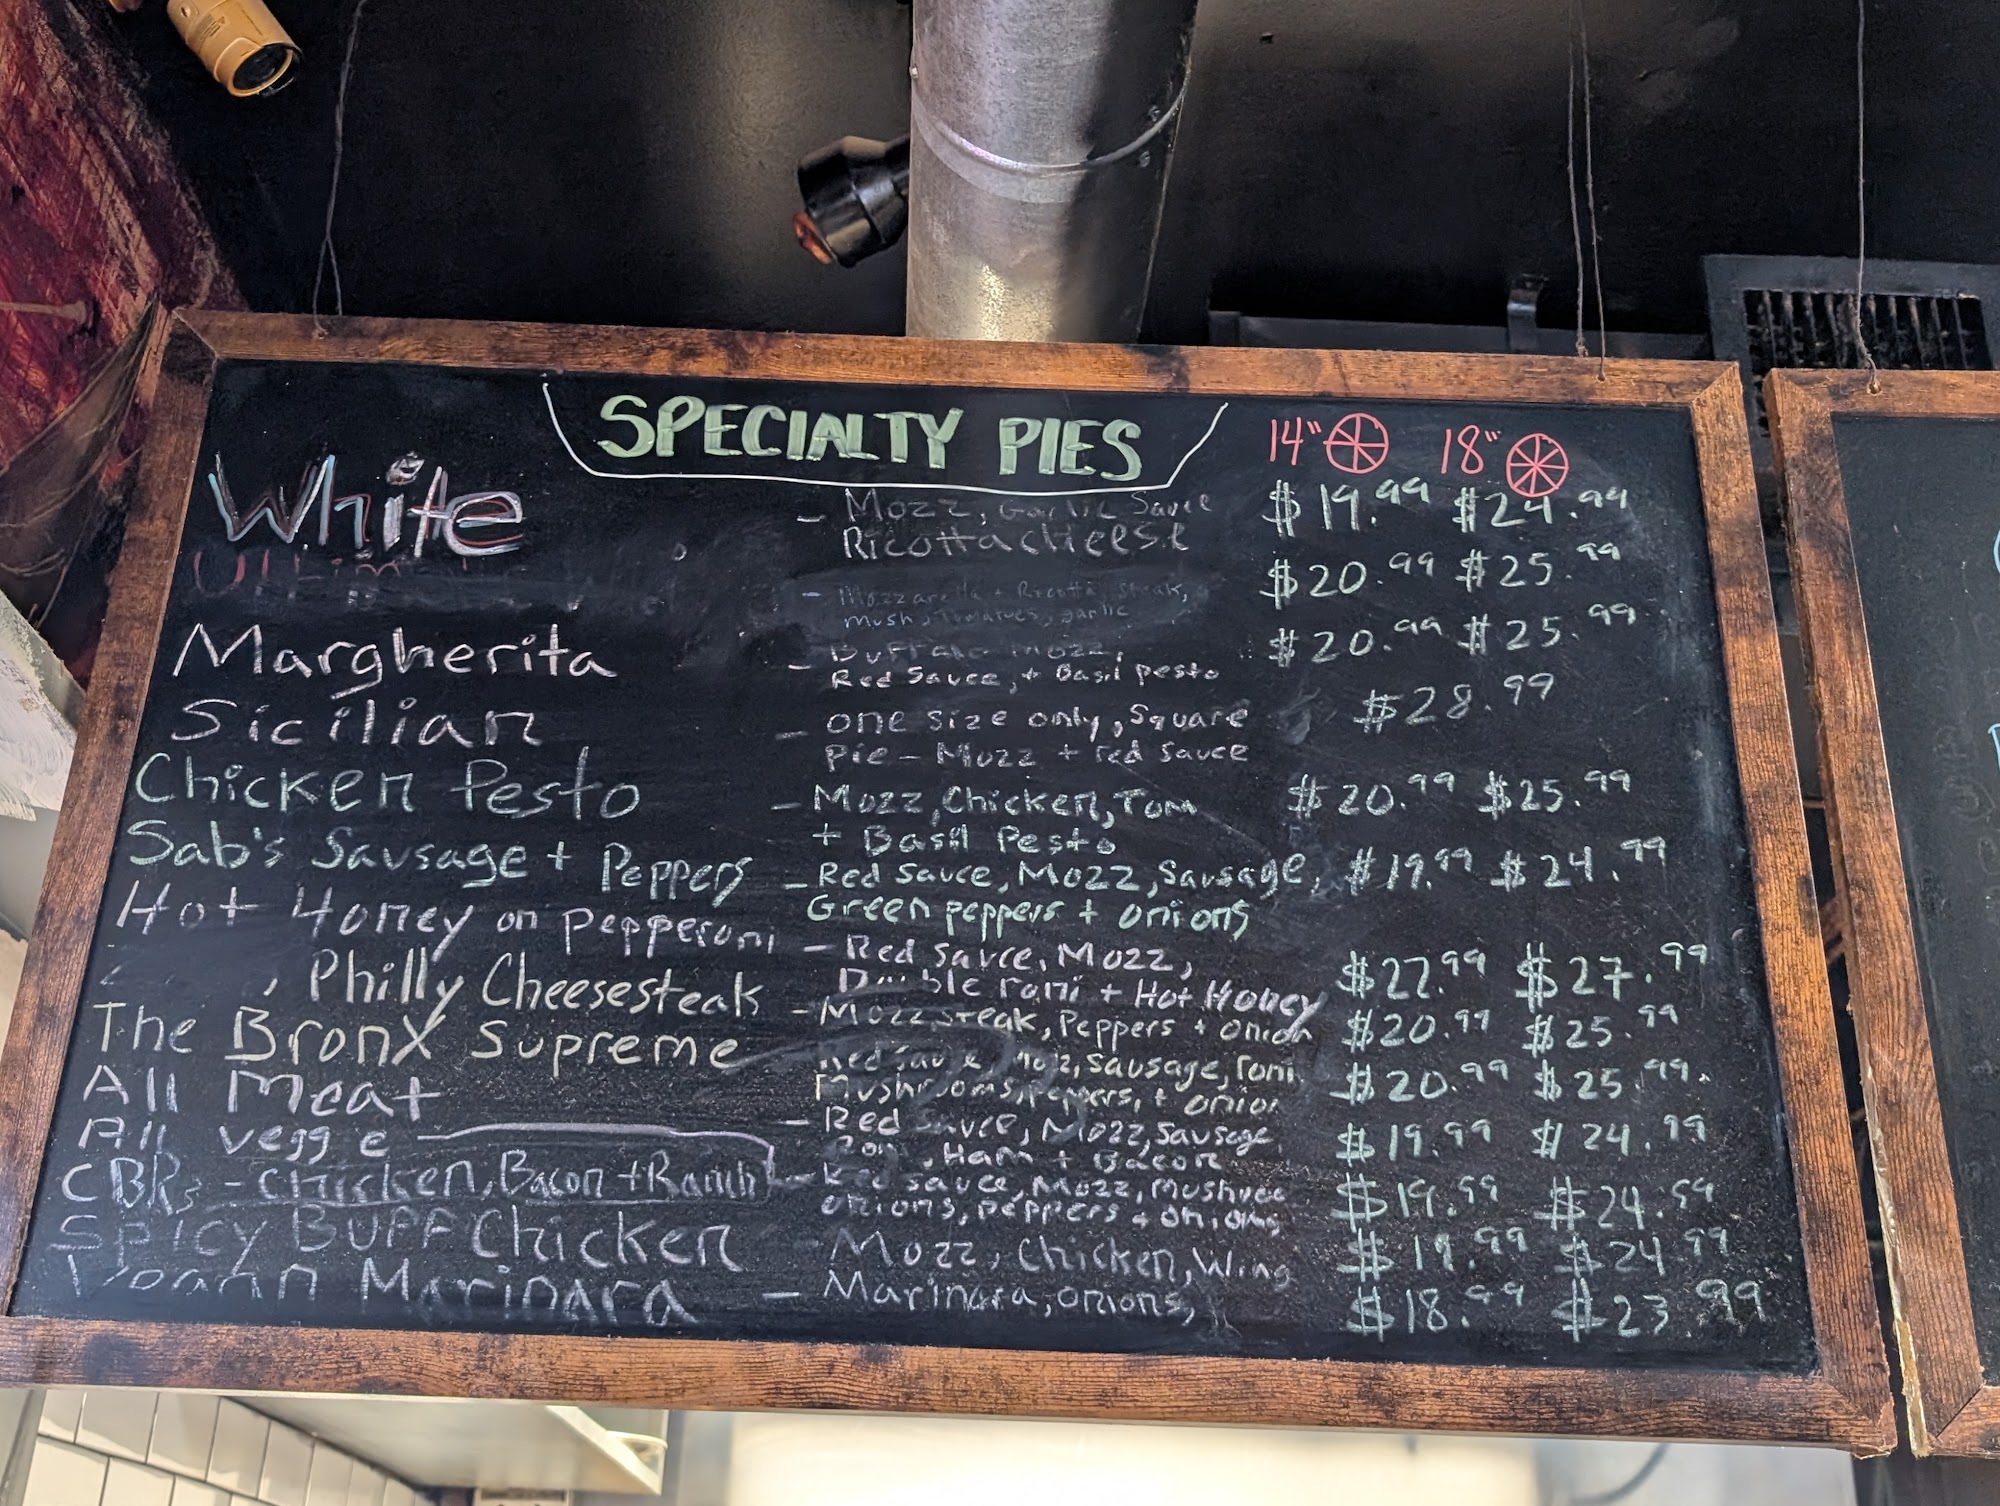 SPECIALTY PIES 14" 18"
White - Mozz, Garlic Sauce $19.99 $24.99
Ricotta cheese
- Mozzarella + Ricotta, Steak, $20.99 $25.99
Mush, Tomatoes, garlic
Margherita - Buffalo Mozz, $20.99 $25.99
Red Sauce, + Basil pesto
Sicilian - one size only, Square $28.99
Pie - Mozz + red sauce
Chicken Pesto - Mozz, Chicken, Tom $20.99 $25.99
+ Basil Pesto
Sab's Sausage + Peppers - Red Sauce, Mozz, Sausage, $19.99 $24.99
Green peppers + onions
Hot Honey on pepperoni - Red sauce, Mozz, $22.99 $27.99
Double roni + Hot Honey
Philly Cheesesteak - Mozz, steak, Peppers + onion $20.99 $25.99
The BronX Supreme Red sauce, Moz, Sausage, roni $20.99 $25.99.
Mushrooms, peppers, + onion
All Meat - Red sauce, Mozz, Sausage $19.99 $24.99
Roni, Ham + Bacon
All veggie - Red sauce, Mozz, mushroo $19.99 $24.99
onions, peppers + onions,
CBRs - Chicken, Bacon + Ranch
Spicy Buff Chicken - Mozz, Chicken, Wing $19.99 $24.99
Marinara - Marinara, onions, $18.99 $23.99